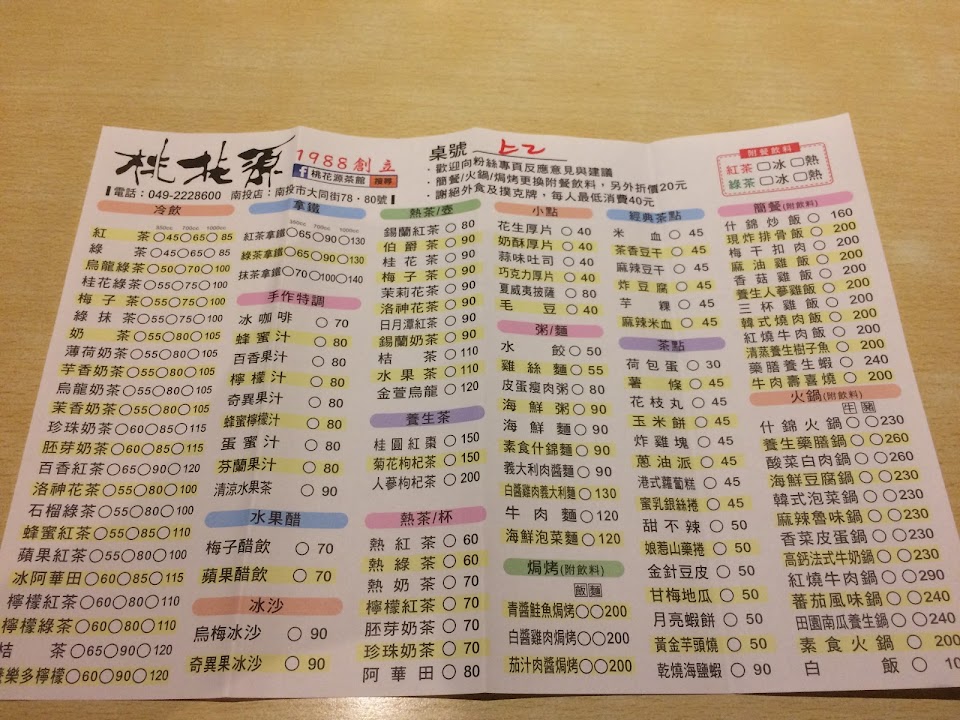 桃花源
1988創立
桃花源茶館 搜尋
電話：049-2228600 南投店：南投市大同街78・80號
桌號 上2
・歡迎向粉絲專頁反應意見與建議
・簡餐/火鍋/焗烤更換附餐飲料，另外折價20元
・謝絕外食及撲克牌，每人最低消費40元
附餐飲料
紅茶 □冰 □熱
綠茶 □冰 □熱
冷飲
350cc 700cc 1000cc
紅茶 ○45○65○85
綠茶 ○45○65○85
烏龍綠茶○50○70○100
桂花綠茶○55○75○100
梅子茶○55○75○100
綠抹茶○55○75○100
奶茶○55○80○105
薄荷奶茶○55○80○105
芋香奶茶○55○80○105
烏龍奶茶○55○80○105
茉香奶茶○55○80○105
珍珠奶茶○55○80○105
胚芽奶茶○60○85○115
百香紅茶○65○90○120
洛神花茶○55○80○100
石榴綠茶○55○80○100
蜂蜜紅茶○55○80○110
蘋果紅茶○55○80○100
冰阿華田○60○85○115
檸檬紅茶○60○80○110
檸檬綠茶○60○80○110
桔茶○65○90○120
樂多檸檬○60○90○120
拿鐵
350cc 700cc 1000cc
紅茶拿鐵○65○90○130
綠茶拿鐵○65○90○130
抹茶拿鐵○70○100○140
手作特調
冰咖啡○70
蜂蜜汁○80
百香果汁○80
檸檬汁○80
奇異果汁○80
蜂蜜檸檬汁○80
蛋蜜汁○80
芬蘭果汁○80
清涼水果茶○90
水果醋
梅子醋飲○70
蘋果醋飲○70
冰沙
烏梅冰沙○90
奇異果冰沙○90
熱茶/壺
錫蘭紅茶○80
伯爵茶○90
桂花茶○90
梅子茶○90
茉莉花茶○90
洛神花茶○90
日月潭紅茶○90
錫蘭奶茶○90
桔茶○110
水果茶○110
金萱烏龍○120
養生茶
桂圓紅棗○150
菊花枸杞茶○150
人蔘枸杞茶○200
熱茶/杯
熱紅茶○60
熱綠茶○60
熱奶茶○70
檸檬紅茶○70
胚芽奶茶○70
珍珠奶茶○70
阿華田○80
小點
花生厚片○40
奶酥厚片○40
蒜味吐司○40
巧克力厚片○40
夏威夷披薩○80
毛豆○40
粥/麵
水餃○50
雞絲麵○55
皮蛋瘦肉粥○80
海鮮粥○90
海鮮麵○90
素食什錦麵○90
義大利肉醬麵○90
白醬雞肉義大利麵○130
牛肉麵○120
海鮮泡菜麵○120
焗烤(附飲料)
飯 麵
青醬鮭魚焗烤○○200
白醬雞肉焗烤○○200
茄汁肉醬焗烤○○200
經典茶點
米血○45
茶香豆干○45
麻辣豆干○45
炸豆腐○45
芋粿○45
麻辣米血○45
茶點
荷包蛋○30
薯條○45
花枝丸○45
玉米餅○45
炸雞塊○45
蔥油派○45
港式蘿蔔糕○45
蜜乳銀絲捲○45
甜不辣○50
娘惹山藥捲○50
金針豆皮○50
甘梅地瓜○50
月亮蝦餅○50
黃金芋頭燒○50
乾燒海鹽蝦○90
簡餐(附飲料)
什錦炒飯○160
現炸排骨飯○200
梅干扣肉○200
麻油雞飯○200
香菇雞飯○200
養生人蔘雞飯○200
三杯雞飯○200
韓式燒肉飯○200
紅燒牛肉飯○200
清蒸養生樹子魚○200
藥膳養生蝦○240
牛肉壽喜燒○200
火鍋(附飲料)
牛 豬
什錦火鍋○○230
養生藥膳鍋○○260
酸菜白肉鍋○○230
海鮮豆腐鍋○○230
韓式泡菜鍋○○230
麻辣魯味鍋○○230
香菜皮蛋鍋○○230
高鈣法式牛奶鍋○○230
紅燒牛肉鍋○○290
番茄風味鍋○○240
田園南瓜養生鍋○○240
素食火鍋○200
白飯○10